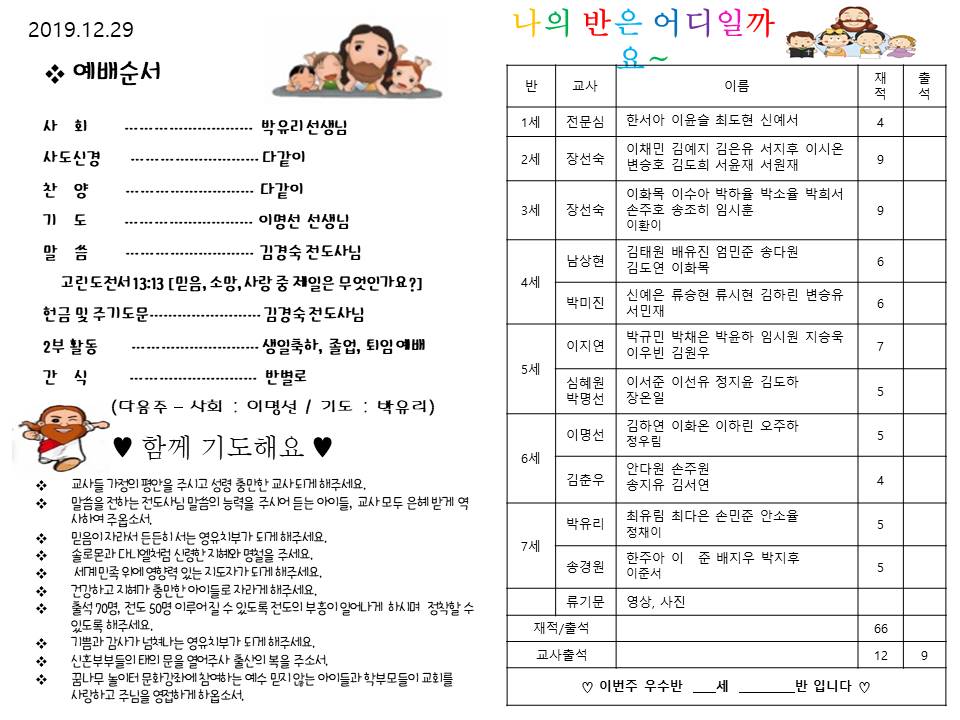 2019.12.29
❖ 예배순서
사 회 --------------------------- 박유리선생님
사도신경 --------------------------- 다같이
찬 양 --------------------------- 다같이
기 도 --------------------------- 이명선 선생님
말 씀 --------------------------- 김경숙전도사님
고린도전서13:13 [믿음, 소망, 사랑 중 제일은 무엇인가요?]
헌금 및 주기도문------------------------ 김경숙전도사님
2부 활동 --------------------------- 생일축하, 졸업, 퇴임예배
간 식 --------------------------- 반별로
(다음주 – 사회 : 이명선 / 기도 : 박유리)
♥ 함께 기도해요 ♥
❖ 교사들 가정의 평안을 주시고 성령 충만한 교사되게 해주세요.
❖ 말씀을 전하는 전도사님 말씀의 능력을 주시어 듣는 아이들, 교사 모두 은혜 받게 역
사하여 주옵소서.
❖ 믿음이 자라서 든든히 서는 영유치부가 되게 해주세요.
❖ 솔로몬과 다니엘처럼 신령한 지혜와 명철을 주세요.
❖ 세계 민족 위에 영향력 있는 지도자가 되게 해주세요.
❖ 건강하고 지혜가 충만한 아이들로 자라게 해주세요.
❖ 출석 70명, 전도 50명 이루어질 수 있도록 전도의 부흥이 일어나게 하시며 정착할 수
있도록 해주세요.
❖ 기쁨과 감사가 넘쳐나는 영유치부가 되게 해주세요.
❖ 신혼부부들의 태의 문을 열어주사 출산의 복을 주소서.
❖ 꿈나무 놀이터 문화강좌에 참여하는 예수 믿지 않는 아이들과 학부모들이 교회를
사랑하고 주님을 영접하게 하옵소서.
나의 반은 어디일까
요~
반 교사 이름 재적 출석
1세 전문심 한서아 이윤슬 최도현 신예서 4
2세 장선숙 이채민 김예지 김은유 서지후 이시온 9
변승호 김도희 서윤재 서원재
3세 장선숙 이화목 이수아 박하율 박소율 박희서 9
손주호 송조히 임시훈
이환이
4세 남상현 김태원 배유진 엄민준 송다원 6
김도연 이화목
박미진 신예은 류승현 류시현 김하린 변승유 6
서민재
5세 이지연 박규민 박채은 박윤하 임시원 지승욱 7
이우빈 김원우
심혜원 이서준 이선유 정지윤 김도하 5
박명선 장온일
6세 이명선 김하연 이화온 이하린 오주하 5
정우림
김춘우 안다원 손주원 4
송지유 김서연
7세 박유리 최유림 최다은 손민준 안소율 5
정채이
송경원 한주아 이 준 배지우 박지후 5
이준서
류기문 영상, 사진
재적/출석 66
교사출석 12 9
♡ 이번주 우수반 ___세 ________반 입니다 ♡